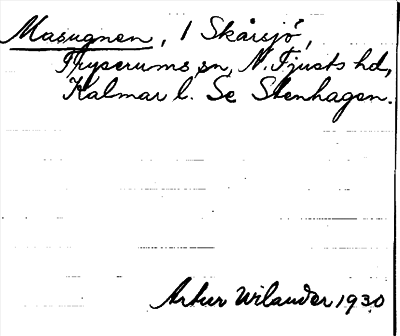 Masugnen, 1 Skårsjö,
Tryserums sn, N. Tjusts hd,
Kalmar l. Se Stenhagen.
Artur Wilander 1930